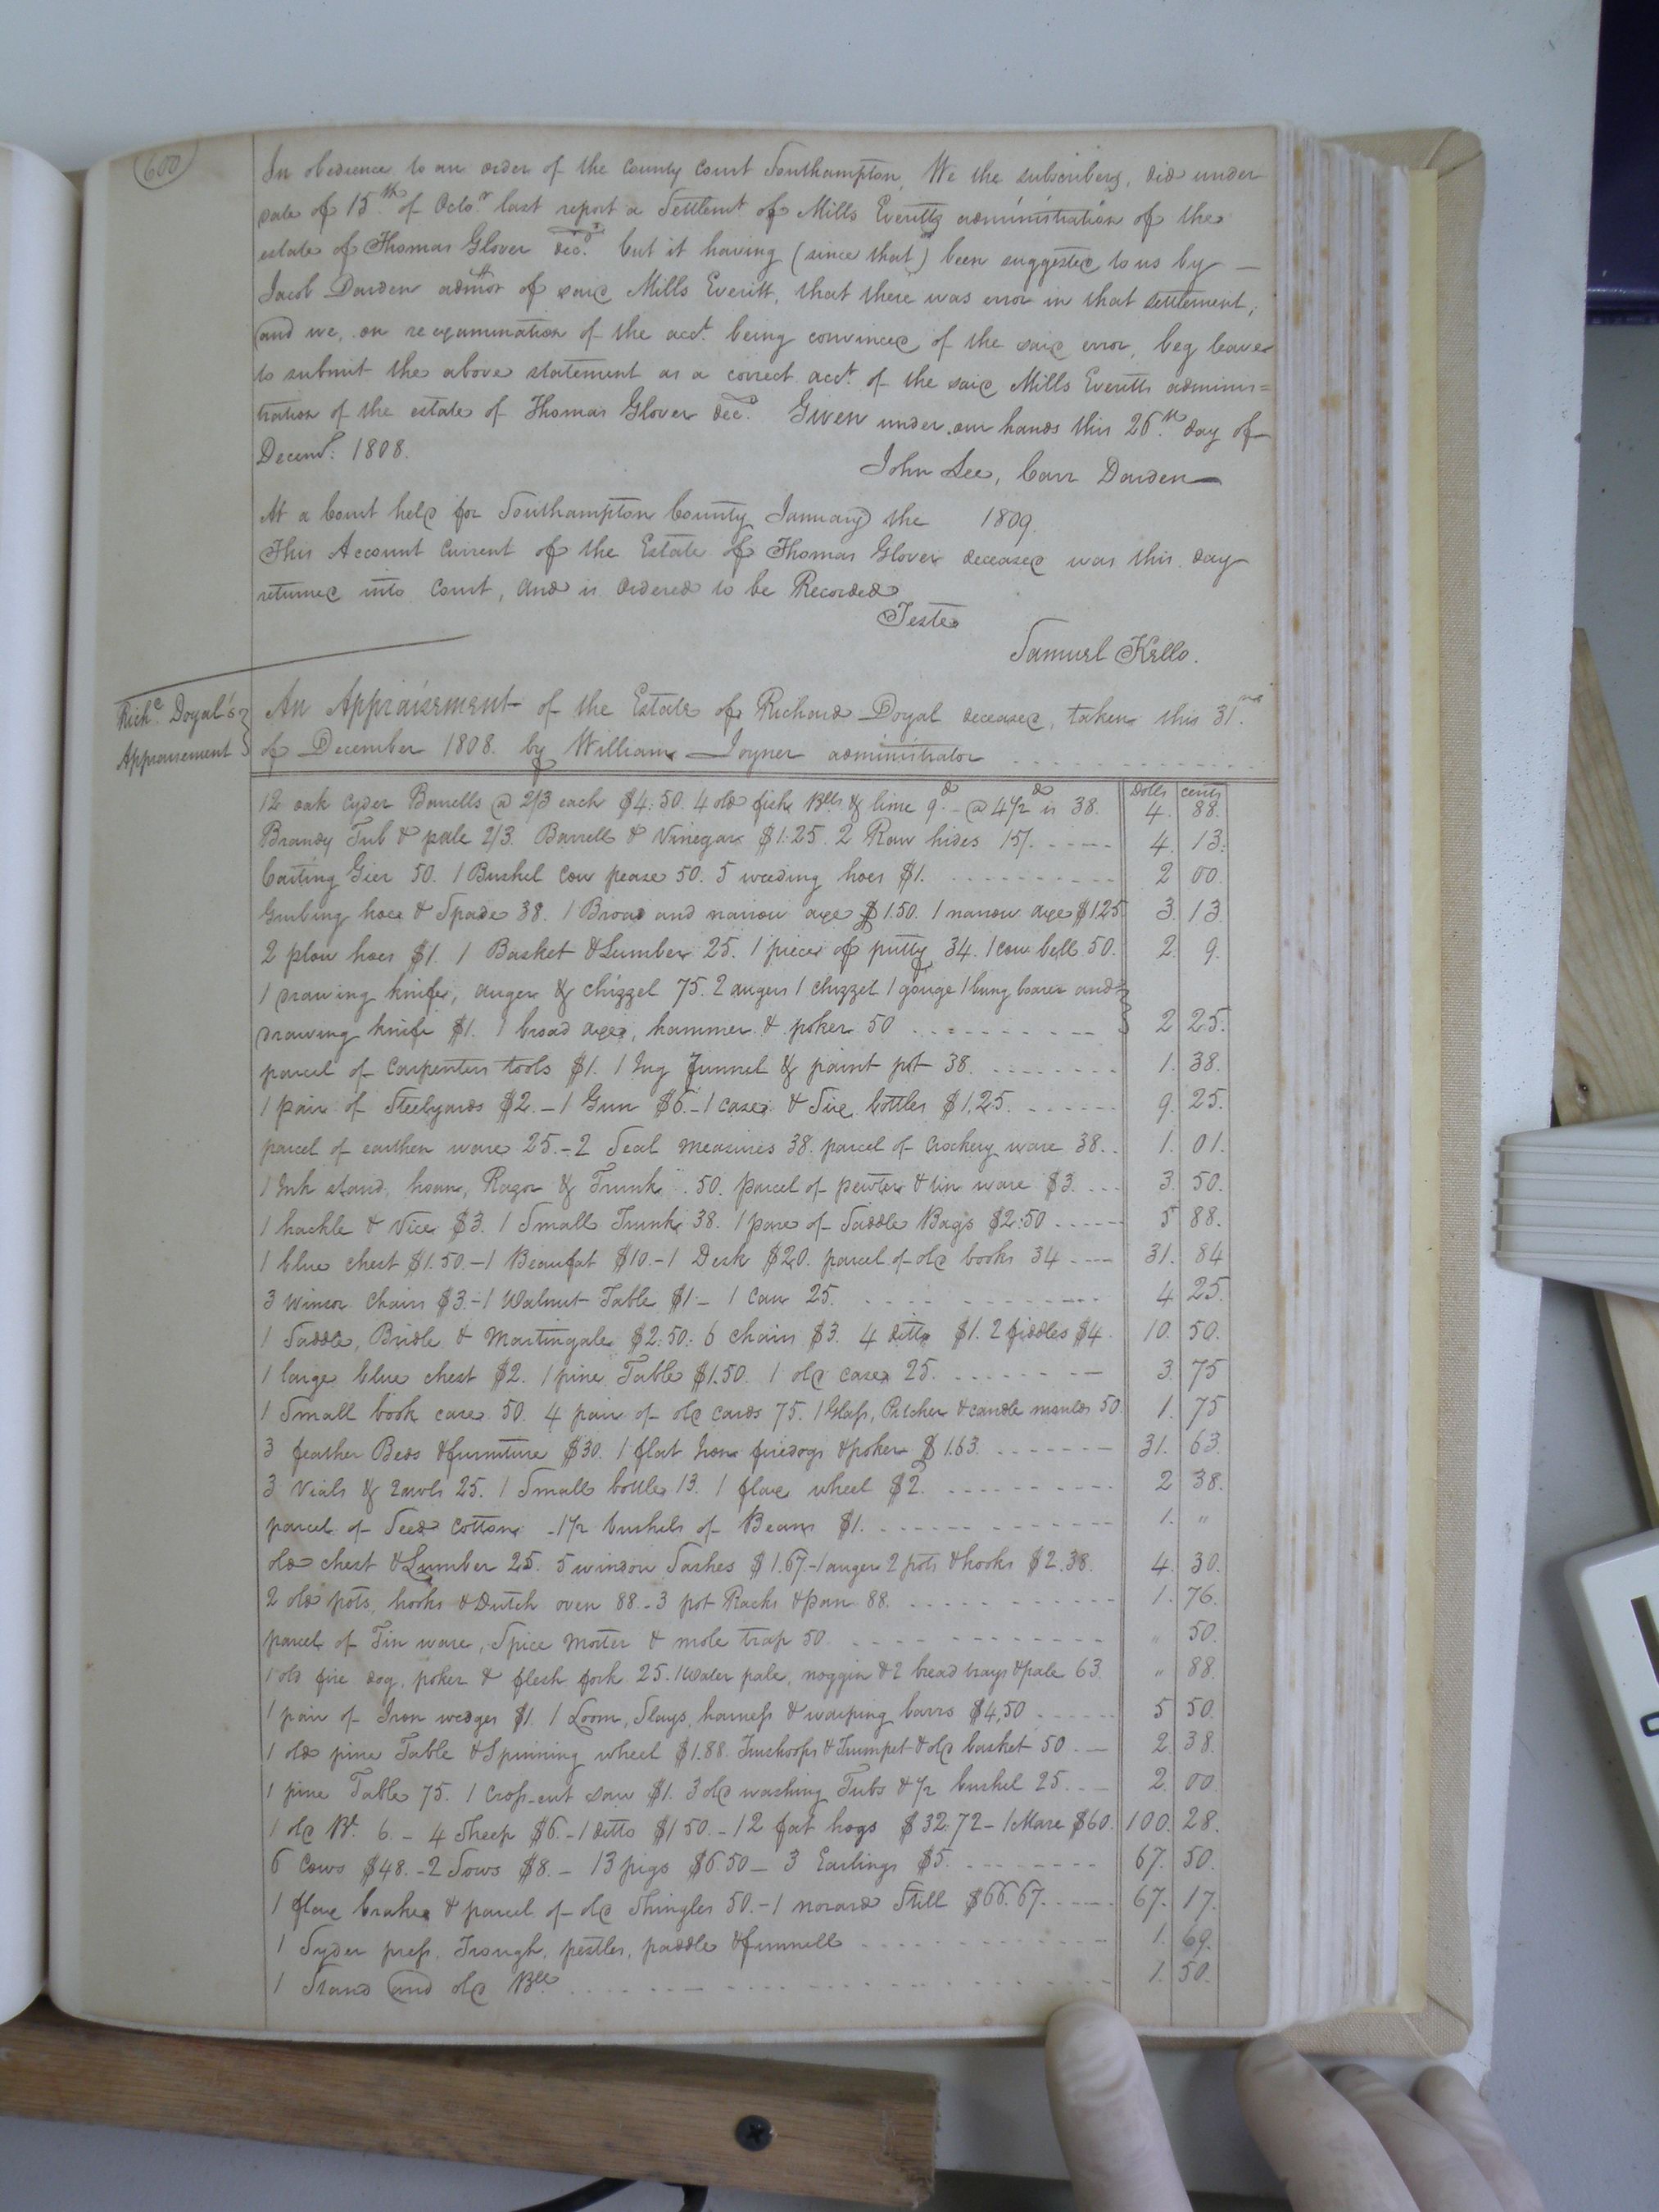 600
In obedience to an order of the County Court Southampton, We the subscribers, did under
date of 15th of Octor last report a Settlemt of Mills Everitts administration of the
estate of Thomas Glover decd but it having (since that) been suggested to us by —
Jacob Darden admor of said Mills Everitt, that there was error in that settlement,
and we, on reexamination of the acct being convinced of the said error, beg leave
to submit the above statement as a correct acct of the said Mills Everitts adminis=
tration of the estate of Thomas Glover decd Given under our hands this 26th day of
Decemr: 1808.
John Lee, Carr Darden
At a Court held for Southampton County January the 1809.
This Account Current of the Estate of Thomas Glover deceased was this day
returned into Court, and is ordered to be Recorded
Teste
Samuel Kello.
Richd Doyal's
Appraisement
An Appraisement of the Estate of Richard Doyal deceased, taken this 31st
of December 1808. by William Joyner administrator
Dolls cents
12 oak Cyder Barrells @ 2/3 each $4:50. 4 old fish Blls & lime 9d - @ 4 1/2d is 38. 4. 88.
Brandy Tub & pale 2/3. Barrell & Vinegar $1.25. 2 Raw hides 15/. 4. 13.
Carting Gier 50. 1 Bushel Cow pease 50. 5 weeding hoes $1. 2 00.
Grubing hoe & Spade 38. 1 Broad and narrow axe $1.50. 1 narrow axe $1.25 3. 13.
2 plow hoes $1. 1 Basket & Lumber 25. 1 piece of putty 34. 1 cow bell 50. 2. 9.
1 drawing knife, auger & chizzel 75. 2 augers 1 chizzel 1 gouge 1 bung boarer and
drawing knife $1. 1 broad axe, hammer & poker 50 2 25.
parcel of Carpenters tools $1. 1 Jug funnel & paint pot 38. 1. 38.
1 pair of Steelyards $2. - 1 Gun $6. - 1 case & Six bottles $1.25. 9. 25.
parcel of earthen ware 25. - 2 Seal measures 38. parcel of Crockery ware 38. 1. 01.
1 Ink stand, hoan, Razor & Trunk 50. parcel of pewter & tin ware $3. 3. 50.
1 hackle & Vice $3. 1 Small Trunk 38. 1 pare of Saddle Bags $2:50 5 88.
1 blue chest $1.50. - 1 Beaufat $10. - 1 Desk $20. parcel of old books 34 31. 84
3 Winsor Chairs $3. - 1 Walnut Table $1 - 1 Can 25. 4 25.
1 Saddle, Bridle & Martingale $2:50. 6 chairs $3. 4 ditto $1. 2 fiddles $4. 10. 50.
1 large blue chest $2. 1 pine Table $1.50. 1 old case 25. 3. 75
1 Small book case 50. 4 pair of old cards 75. 1 Glass, Pitcher & candle moulds 50 1. 75
3 feather Beds & furniture $30. 1 flat Iron firedogs & poker $1.63. 31. 63.
3 Vials & 2 awls 25. 1 Small bottle 13. 1 flax wheel $2. 2 38.
parcel of Seed Cotton - 1 1/2 bushels of Beans $1. 1. "
old chest & Lumber 25. 5 window Sashes $1.67. - 1 auger 2 pots & hooks $2.38. 4. 30.
2 old pots, hooks & Dutch oven 88. - 3 pot Racks & pan 88. 1. 76.
parcel of Tin ware, Spice morter & mole trap 50 " 50.
1 old fire dog, poker & flesh fork 25. 1 Water pale, noggin & 2 bread trays & pale 63. " 88.
1 pair of Iron wedges $1. 1 Loom, Slays, harness & warping barrs $4,50 5 50.
1 old pine Table & Spinning wheel $1.88. & Trumpet & old basket 50. 2. 38.
1 pine Table 75. 1 Cross-cut saw $1. 3 old washing Tubs & 1/2 bushel 25. 2. 00.
1 old Bl. 6. - 4 Sheep $6. - 1 ditto $1 50. - 12 fat hogs $32.72 - 1 Mare $60. 100. 28.
6 Cows $48. - 2 Sows $8. - 13 pigs $6.50 - 3 Earlings $5. 67. 50.
1 flax brake & parcel of old Shingles 50. - 1 Still $66.67. 67. 17.
1 Syder press, Trough, pestles, paddle & funnell 1. 69.
1 Stand and old Bll. 1. 50.